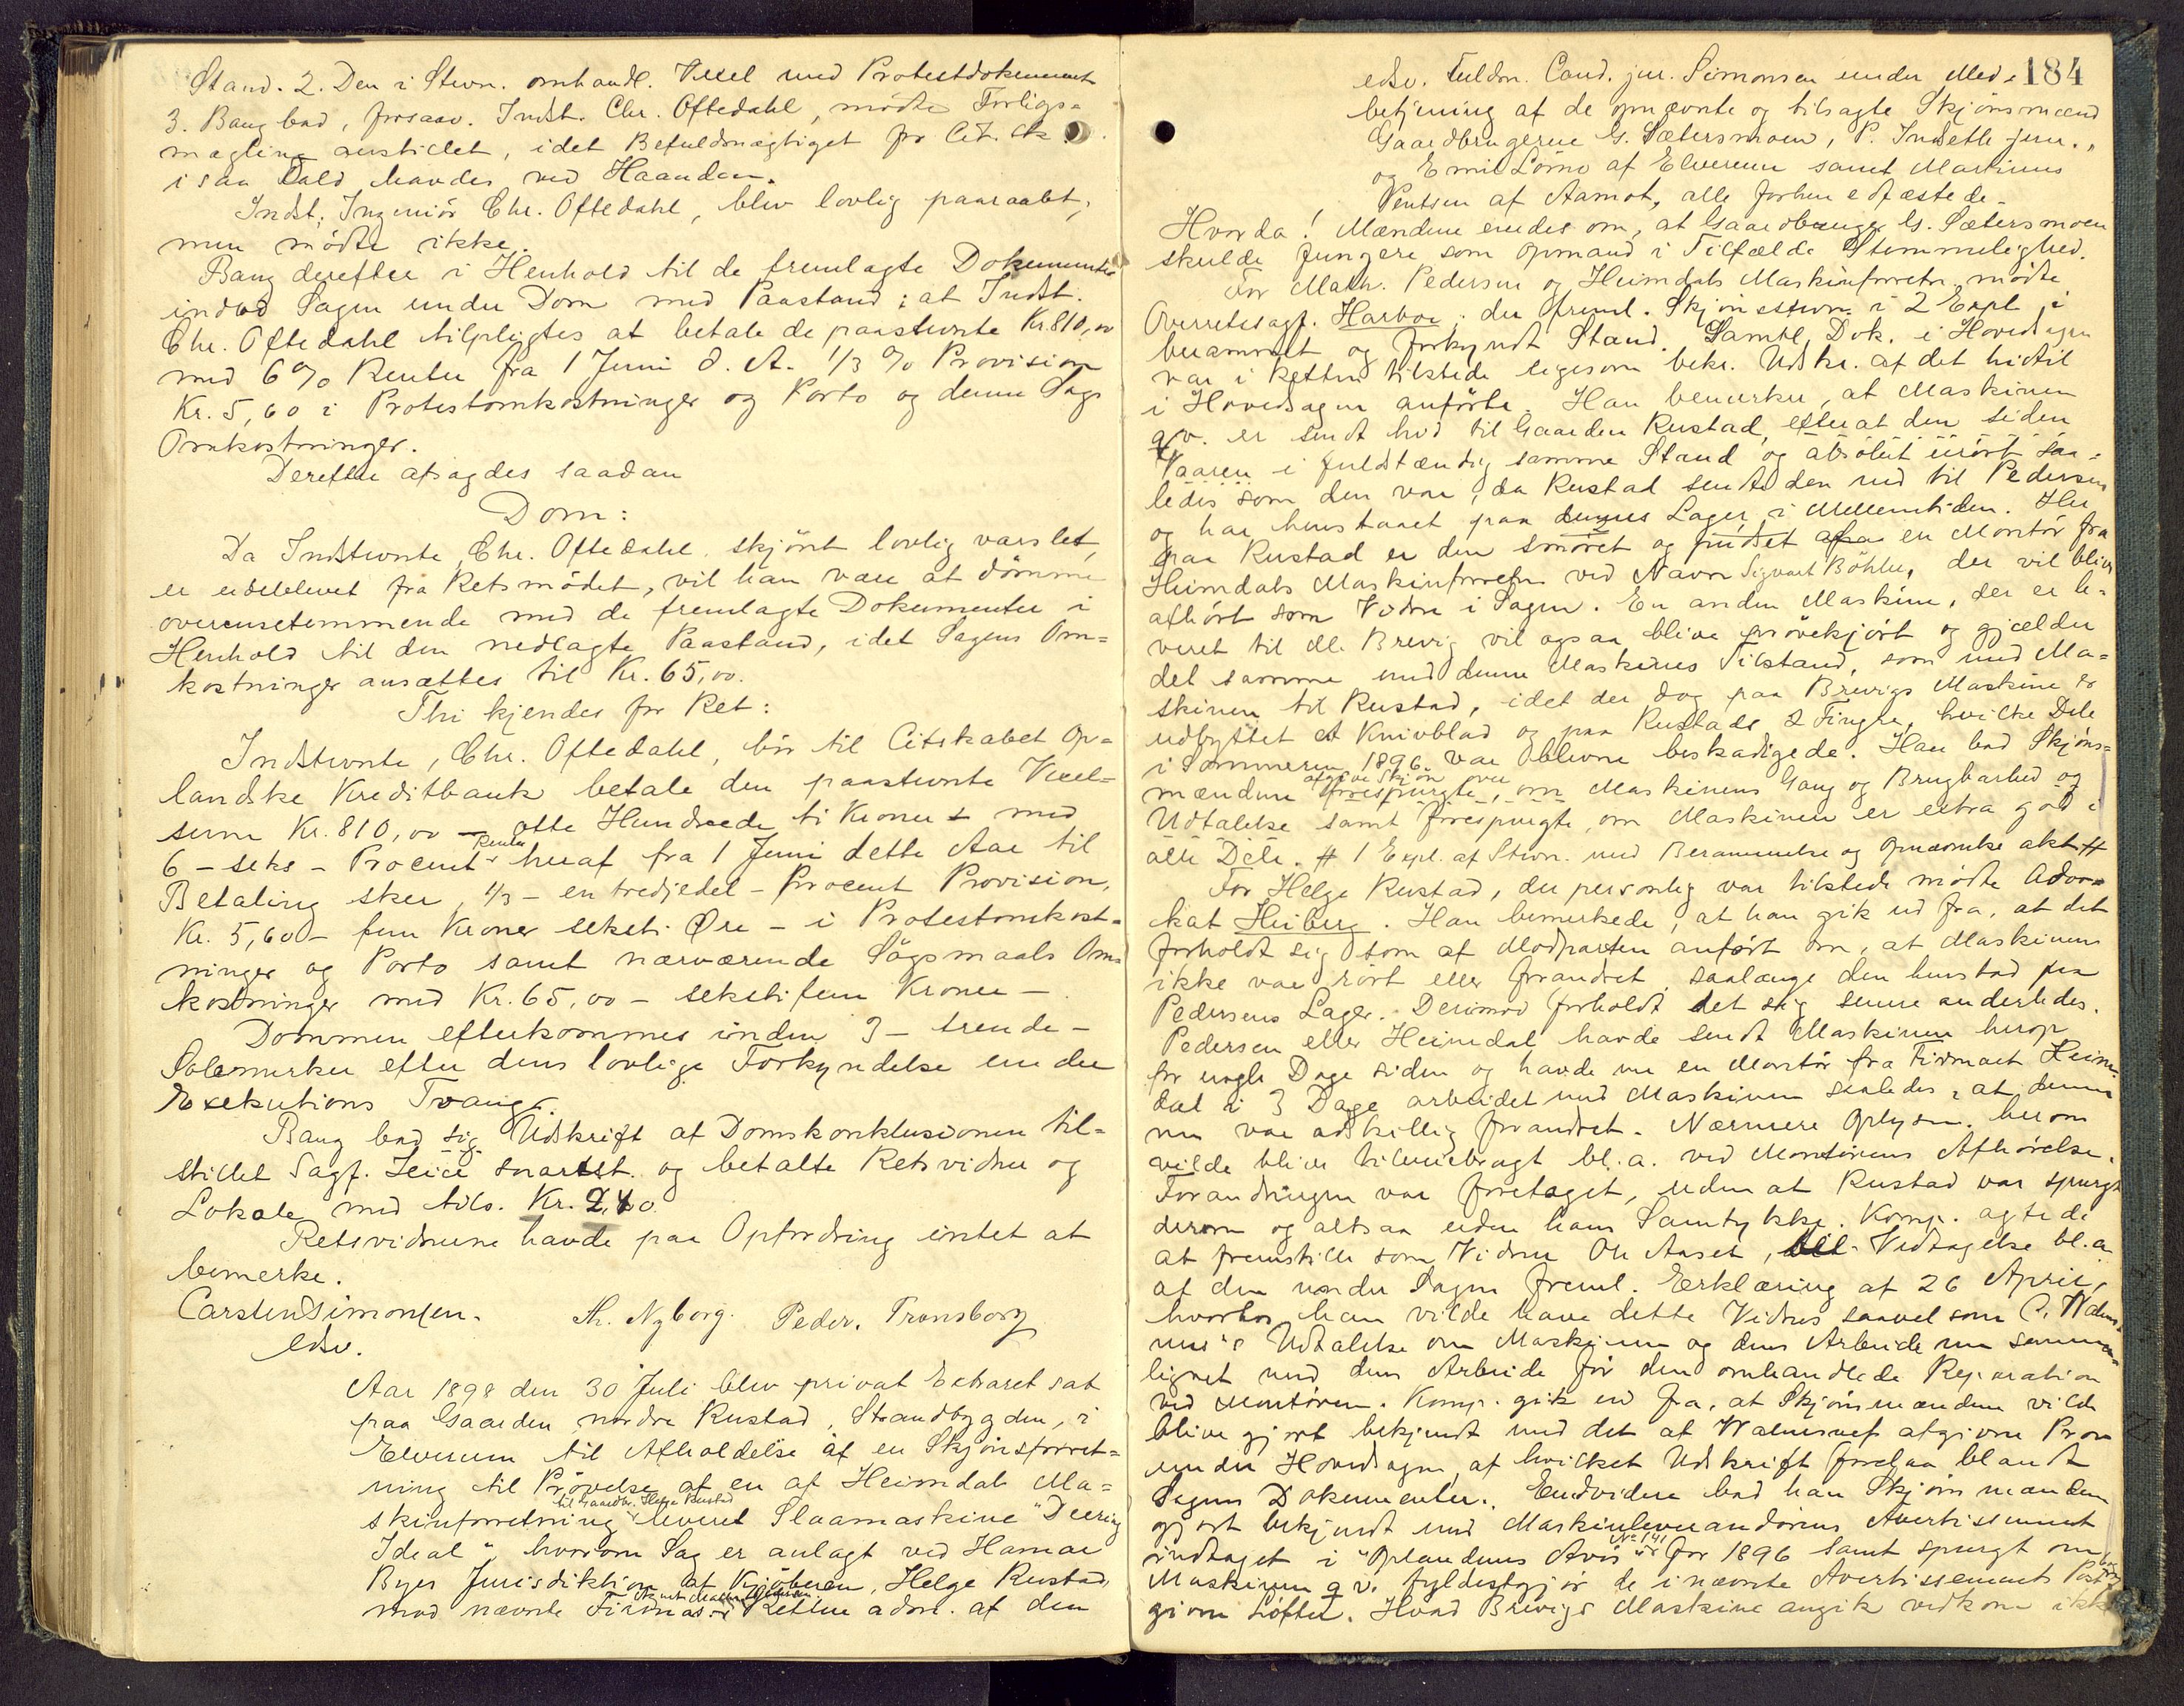 Stand. 2. Den i Stevn. omhandl. Vexel med Protestdokument
3. Bang bad, forsaav. Indst. Chr. Oftedahl, mødte Forligs-
mægling anstillet, idet Befuldmægtiget for Cit. sk.
i saa Fald havdes ved Haanden.
Indst. Ingeniør Chr. Oftedahl, blev lovlig paaraabt,
men mødte ikke.
Bang derefter i Henhold til de fremlagte Dokumenter
indlod Sagen under Dom med Paastand: at Indst.
Chr. Oftedahl tilpligtes at betale de paastevnte Kr. 810,00
med 6 % Renter fra 1 Juni d. A. 1/3 % Provision
Kr. 5,60 i Protestomkostninger og Porto og denne Sags
Omkostninger.
Derefter afsagdes saadan
Dom:
Da Indstevnte, Chr. Oftedahl, skjønt lovlig varslet,
er udeblevet fra Retsmødet, vil han være at dømme
overensstemmende med de fremlagte Dokumenter i
Henhold til den nedlagte Paastand, idet Sagens Om-
kostninger ansættes til Kr. 65,00.
Thi kjendes for Ret:
Indstevnte, Chr. Oftedahl, bør til Citskabet Op-
landske Kreditbank betale den paastevnte Vexel-
sum Kr. 810,00 – otte Hundrede ti Kroner – med
6 – seks – Procent Renter heraf fra 1 Juni dette Aar til
Betaling sker, 1/3 – en tredjedel – Procent Provision,
Kr. 5,60 – fem Kroner seksti Øre – i Protestomkost-
ninger og Porto samt nærværende Søgsmaals Om-
kostninger med Kr. 65,00 – sekstifem Kroner –
Dommen efterkommes inden 3 – trende –
Solemerker efter dens lovlige Forkyndelse under
Exekutions Tvang.
Bang bad sig Udskrift af Domskonklusionen til-
stillet Sagf. snarest og betalte Retsvidner og
Lokale med tils. Kr. 2,40.
Retsvidnerne havde paa Opfordring intet at
bemerke.
Carsten Simonsen.
edsv.
A. Nyborg. Peder. Transborg
Aar 1898 den 30 Juli blev privat Extraret sat
paa Gaarden nordre Rustad, Strandbygden, i
Elverum til Afholdelse af en Skjønsforret-
ning til Prøvelse af en af Heimdals Ma-
skinforretning til Gaardbr. Helge Rustad leveret Slaamaskine "Deering
Ideal", hvorom Sag er anlagt ved Hamar
Byes Jurisdiktion af Kjøberen, Helge Rustad,
mod nævnte Firmas Agent Math. Pedersen. Retten adm. af den
184
edsv. Fuldm. Cand. jur. Simonsen under Med-
betjening af de opnævnte og tilsagte Skjønsmænd
Gaardbrugerne G. Sætersmoen, P. Indset jun.,
og Emil Lømo af Elverum samt Martinus
Pentsen af Aamot, alle forhen edfæstede.
Hvorda! Mændene enedes om, at Gaardbruger G. Sætersmoen
skulde fungere som Opmand i Tilfælde Stemmelighed.
For Math. Pedersen og Heimdals Maskinforretn. mødte
Overretssagf. Harboe, der freml. Skjønsstevn. i 2 Expl. i
berammet og forkyndt Stand. Samtl. Dok. i Hovedsagen
var i Retten tilstede ligesom bekr. Udskr. af det hidtil
i Hovedsagen anførte. Han bemerker, at Maskinen
q.v. er sendt hid til Gaarden Rustad, efterat den siden
Vaaren i fuldstændig samme Stand og absolut urørt saa-
ledes som den var, da Rustad sendte den ned til Pedersen
og har henstaaet paa dennes Lager i Mellemtiden. Her
paa Rustad er den smøret og pudset af en Montør fra
Heimdals Maskinforretn. ved Navn Sigvart Bøhler, der vil blive
afhørt som Vidne i Sagen. En anden Maskine, der er le-
veret til M. Brevig vil ogsaa blive prøvekjørt og gjælder
det samme med denne Maskines Tilstand, som med Ma-
skinen til Rustad, idet der dog paa Brevigs Maskine er
udbyttet et Knivblad og paa Rustads 2 Fingre, hvilke Dele
i Sommeren 1896 var blevne beskadigede. Han bad Skjøns-
mændene afgive Skjøn over Maskinens Gang og Brugbarhed og
Udtalelse samt forespurgte, om Maskinen er extra god i
alle Dele. # 1 Expl. af Stevn. med Berammelse og Opnævnelse akt. #
For Helge Rustad, der personlig var tilstede mødte Advo-
kat Heiberg. Han bemerkede, at han gik ud fra, at det
forholdt sig som af Modparten anført om, at Maskinen
ikke var rørt eller forandret, saalænge den henstod paa
Pedersens Lager. Derimod forholdt det sig senere anderledes.
Pedersen eller Heimdal havde sendt Maskinen herop
for nogle Dage siden og havde nu en Montør fra Firmaet Heim-
dal i 3 Dage arbeidet med Maskinen saaledes, at denne
nu var adskillig forandret. Nærmere Oplysn. herom
vilde blive tilveiebragt bl. a. ved Montørens Afhørelse.
Forandringen var foretaget, uden at Rustad var spurgt
derom og altsaa uden hans Samtykke. Komp. agtede
at fremstille som Vidne Ole Aaset, til Vedtagelse bl. a.
af den under Sagen freml. Erklæring af 26 April,
hvorhos han vilde have dette Vidnes saavelsom C. Walmsnes's
Udtalelse om Maskinen og dens Arbeide nu sammen-
lignet med dens Arbeide før den omhandlede Reparation
ved Montøren. Komp. gik ud fra, at Skjønsmændene vilde
blive gjort bekjendt med det af Walmsnes afgivne Prov
under Hovedsagen, af hvilket Udskrift forelaa blandt
Sagens Dokumenter. Endvidere bad han Skjønsmændene
gjort bekjendt med Maskinleverandørens Avertissement
indtaget i "Oplandenes Avis" No 141 for 1896 samt spurgt om
Maskinen q.v. fyldestgjør de i nævnte Avertissement
givne Løfter. Hvad Brevigs Maskine angik vedkom ikke